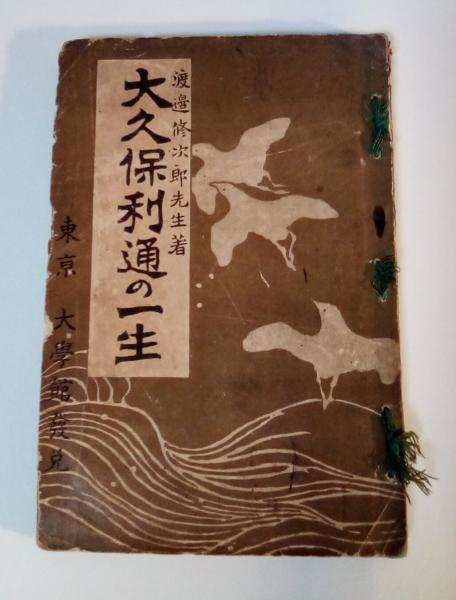 渡邉修次郎先生著
大久保利通の一生
東京 大學館發兌